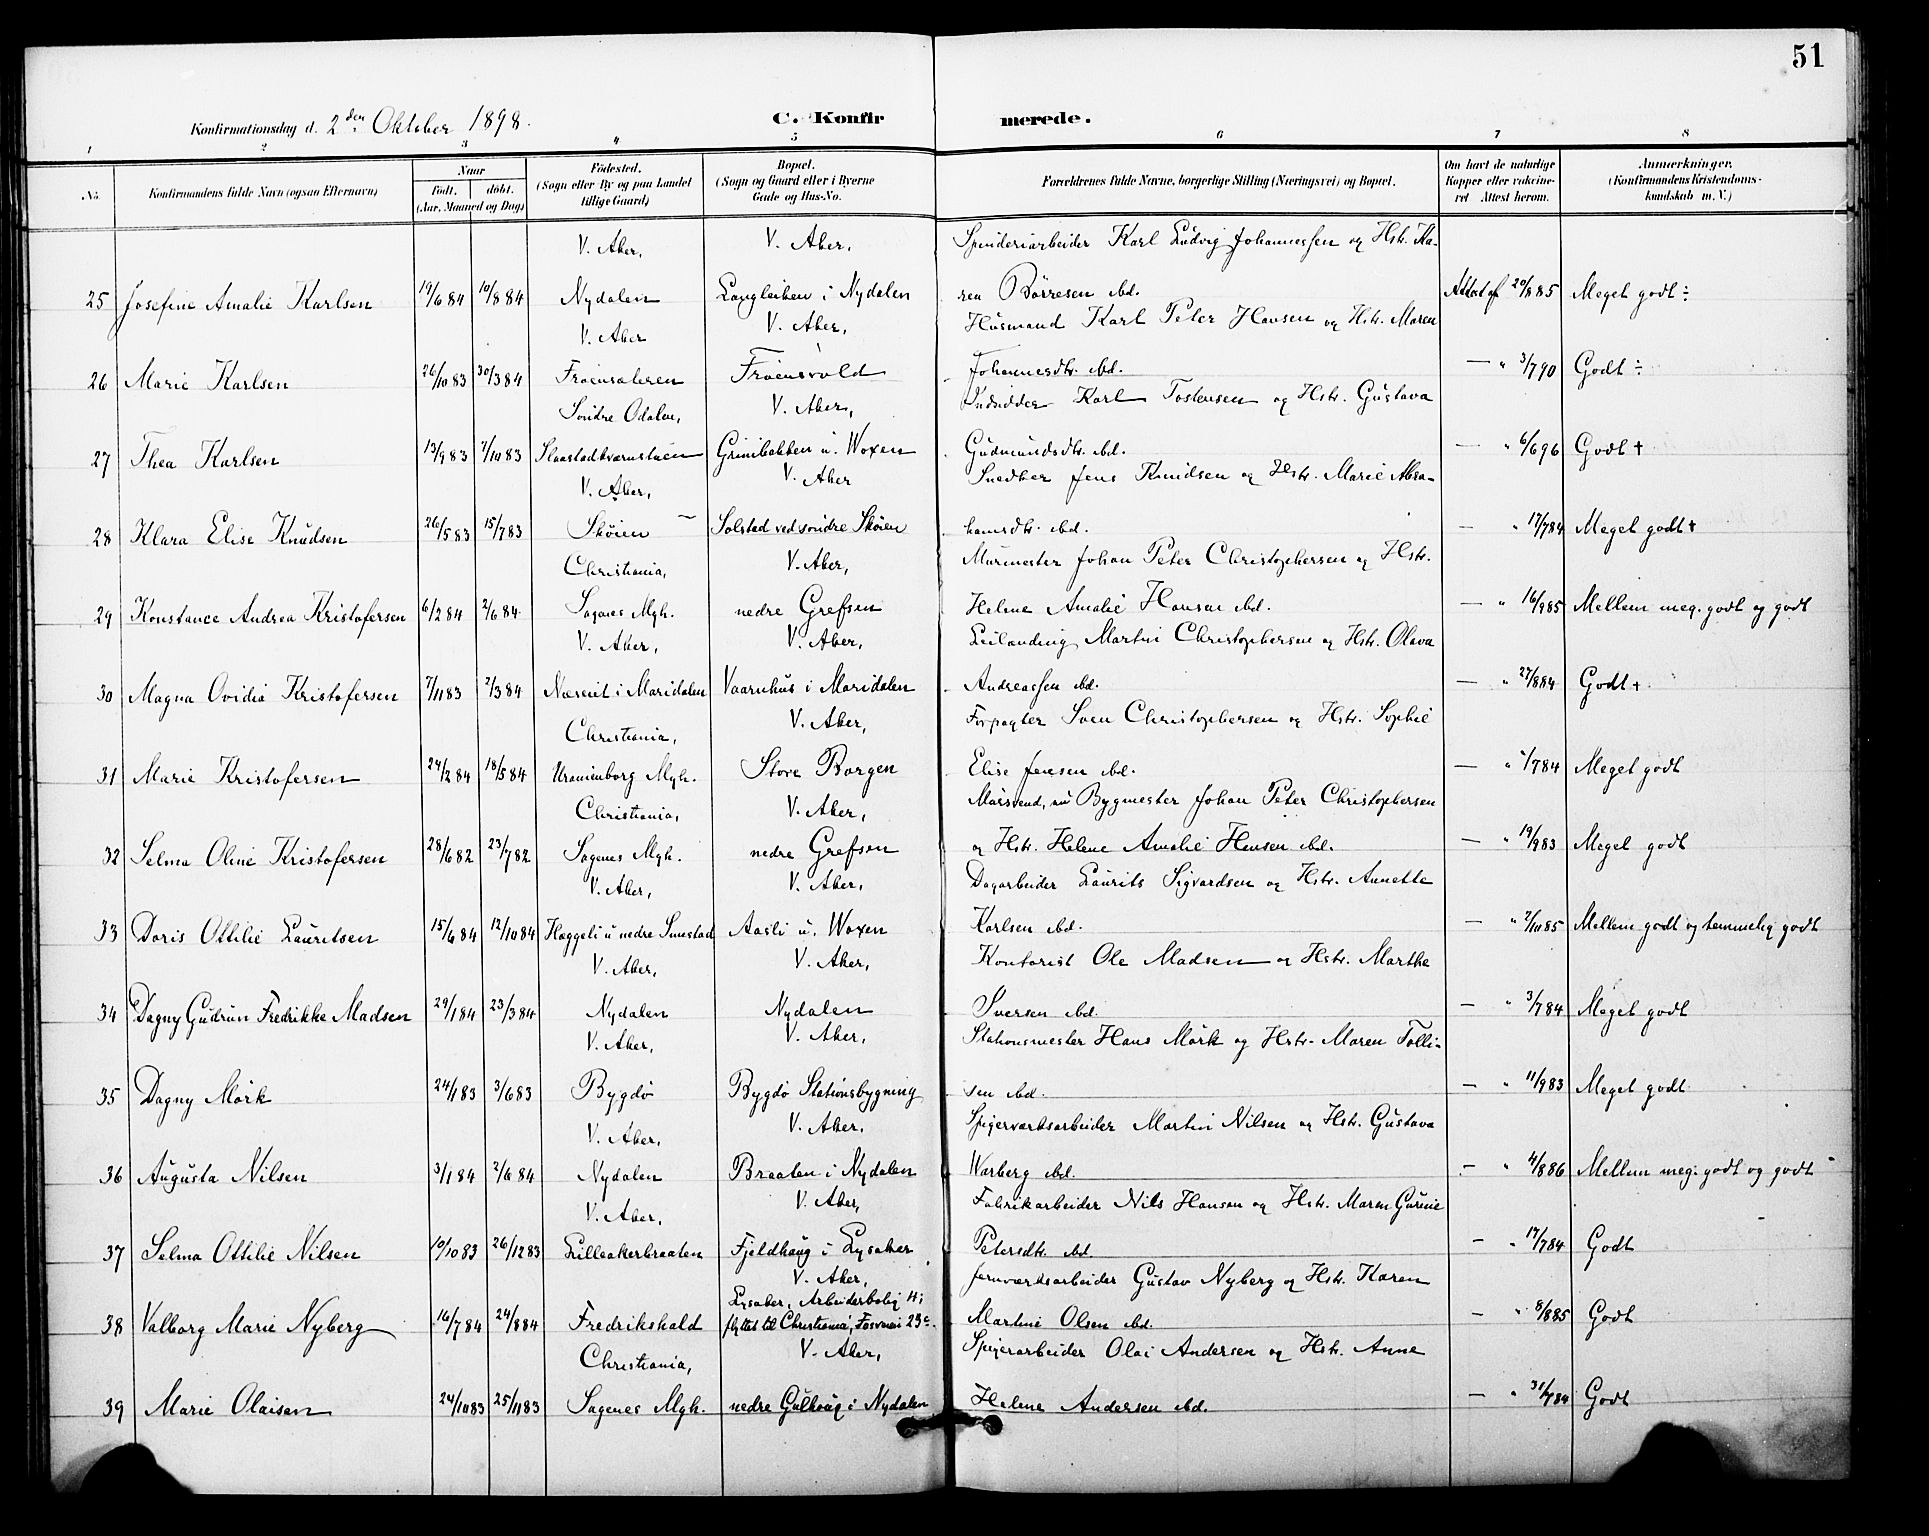 51
Konfirmationsdag d. 2den Oktober 1898.
C. Konfirmerede.
1 2 3 4 5 6 7 8
No.
Konfirmandens fulde Navn (ogsaa Efternavn)
Naar
födt. döbt.
(Aar, Maaned og Dag)
Födested.
(Sogn eller By og paa Landet
tillige Gaard)
Bopæl.
(Sogn og Gaard eller i Byerne
Gade og Hus-No.
Forældrenes fulde Navne, borgerlige Stilling (Næringsvei) og Bopæl.
Om havt de naturlige
Kopper eller vakcine-
ret Attest herom.
Anmærkninger.
(Konfirmandens Kristendoms-
kundskab m. V.)
V. Aker, V. Aker, Spinderiarbeider Karl Ludvig Johannessen og Hstr. Ka-
25 Josefine Amalie Karlsen 19/6 84 10/8 84 Nydalen Langleiken i Nydalen ren Börresen ibd. Attest af 20/8 85 Meget godt ÷
V. Aker V. Aker, Husmand Karl Peter Hansen og Hstr. Maren
26 Marie Karlsen 26/10 83 30/3 84 Fröensvold Johannesdtr. ibd. — " 3/7 90 Godt ÷
Söndre Odalen, V. Aker, Indsidder Karl Tostensen og Hstr. Gustava
27 Thea Karlsen 13/9 83 7/10 83 Slaastadkværnstuen Grinibakken u. Woxen Gudmundsdtr. ibd. — " 6/6 96 Godt +
V. Aker, V. Aker Snedker Jens Knudsen og Hstr. Marie Abra-
28 Klara Elise Knudsen 26/5 83 15/7 83 Skøien Solstad ved söndre Skøien hamsdtr. ibd. — " 17/7 84 Meget godt +
Christiania, V. Aker, Murmester Johan Peter Christophersen og Hstr.
29 Konstance Andrea Kristofersen 6/2 84 2/6 84 Sagenes Mgh. nedre Grefsen Helene Amalie Hansen ibd. — " 16/9 85 Mellem meg. godt og godt
V. Aker, V. Aker, Leilænding Martin Christophersen og Hstr. Olava
30 Magna Ovidia Kristofersen 7/11 83 2/3 84 i Maridalen Vaarnhus i Maridalen Andreassen ibd. — " 27/8 84 Godt +
Christiania, V. Aker, Forpagter Sven Christophersen og Hstr. Sophie
31 Marie Kristofersen 24/2 84 18/5 84 Uranienborg Mgh. Store Borgen Elise Jensen ibd. — " /7 84 Meget godt
Christiania, V. Aker, Mursvend, nu Bygmester Johan Peter Christophersen
32 Selma Oline Kristofersen 28/6 82 23/7 82 Sagenes Mgh. nedre Grefsen og Hstr. Helene Amalie Hansen ibd. — " 19/9 83 Meget godt
V. Aker, V. Aker, Dagarbeider Laurits Sigvardsen og Hstr. Annette
33 Doris Ottilie Lauritsen 15/6 84 12/10 84 Haggeli u nedre Smestad Aasli u. Woxen Karlsen ibd. — " 2/10 85 Mellem godt og temmelig godt
V. Aker, V. Aker, Kontorist Ole Madsen og Hstr. Marthe
34 Dagny Gudrun Fredrikke Madsen 29/1 84 23/3 84 Nydalen Nydalen Iversen ibd. — " 3/7 84 Meget godt
V. Aker, V. Aker, Stationsmester Hans Mörk og Hstr. Maren Tolli-
35 Dagny Mörk 24/1 83 3/6 83 Bygdö Bygdö Stationsbygning sen ibd. — " 11/9 83 Meget godt
V. Aker, V. Aker, Spigerværksarbeider Martin Nilsen og Hstr. Gustava
36 Augusta Nilsen 3/1 84 2/6 84 Nydalen Braaten i Nydalen Warberg ibd. — " 4/8 86 Mellem meg. godt og godt
V. Aker, V. Aker, Fabrikarbeider Nils Hansen og Hstr. Maren Gurine
37 Selma Ottilie Nilsen 10/10 83 26/12 83 Lilleakerbraaten Fjeldhaug i Lysaker Petersdtr. ibd. — " 17/7 84 Godt
V. Aker, Jernværksarbeider Gustav Nyberg og Hstr. Karen
Lysaker, Arbeiderbolig H;
38 Valborg Marie Nyberg 16/7 84 24/8 84 Fredrikshald flyttet til Christiania, Fossveien 23c. Martine Olsen ibd. — " 8/8 85 Godt
Christiania, V. Aker, Spigerarbeider Olai Andersen og Hstr. Anne
39 Marie Olaisen 24/10 83 25/11 83 Sagenes Mgh. nedre Gulhaug i Nydalen Helene Andersen ibd. — " 31/7 84 Godt